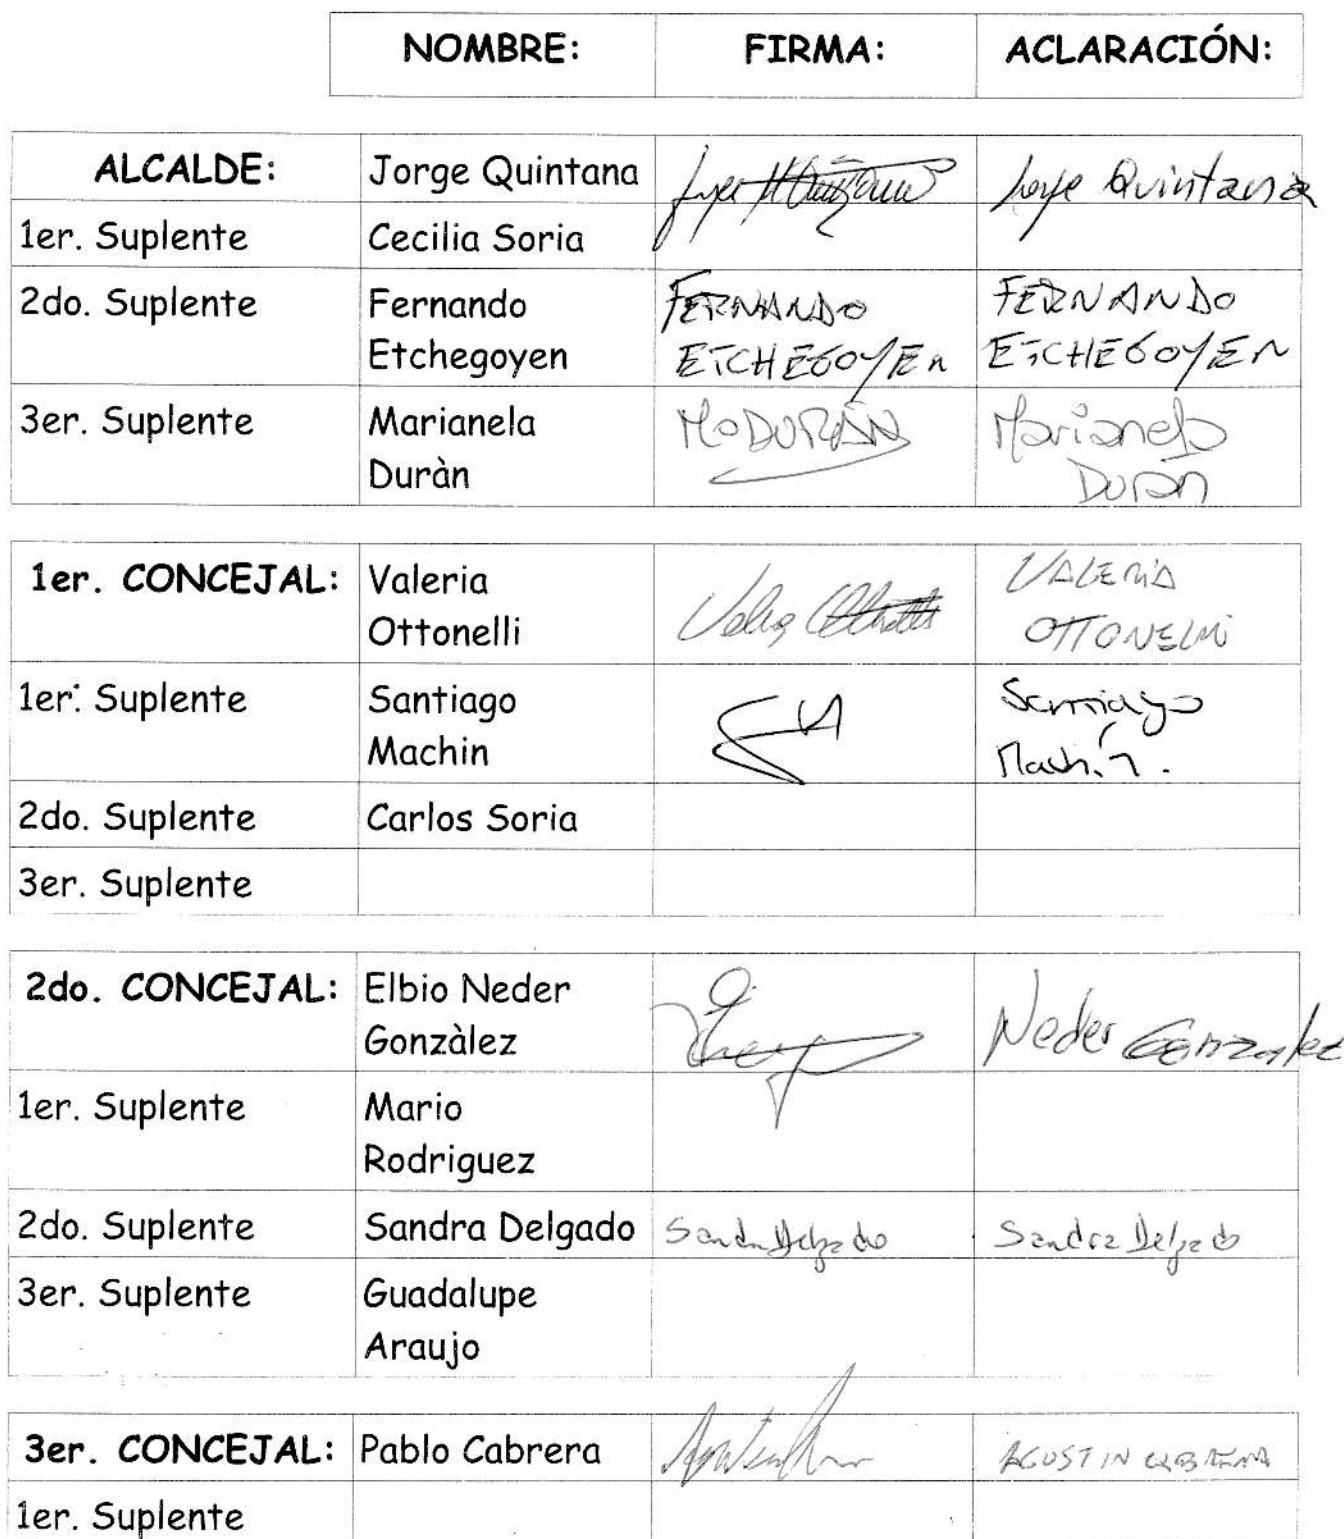 NOMBRE: FIRMA: ACLARACIÓN:
ALCALDE: Jorge Quintana Jorge Quintana
1er. Suplente Cecilia Soria
2do. Suplente Fernando FERNANDO FERNANDO
Etchegoyen ETCHEGOYEN ETCHEGOYEN
3er. Suplente Marianela MaDURÁN Marianela
Duràn Duran
1er. CONCEJAL: Valeria VALERIA
Ottonelli OTTONELLI
1er. Suplente Santiago Santiago
Machin Machín.
2do. Suplente Carlos Soria
3er. Suplente
2do. CONCEJAL: Elbio Neder Neder Gonzalez
Gonzàlez
1er. Suplente Mario
Rodriguez
2do. Suplente Sandra Delgado Sandra Delgado Sandra Delgado
3er. Suplente Guadalupe
Araujo
3er. CONCEJAL: Pablo Cabrera AGUSTIN CABRERA
1er. Suplente